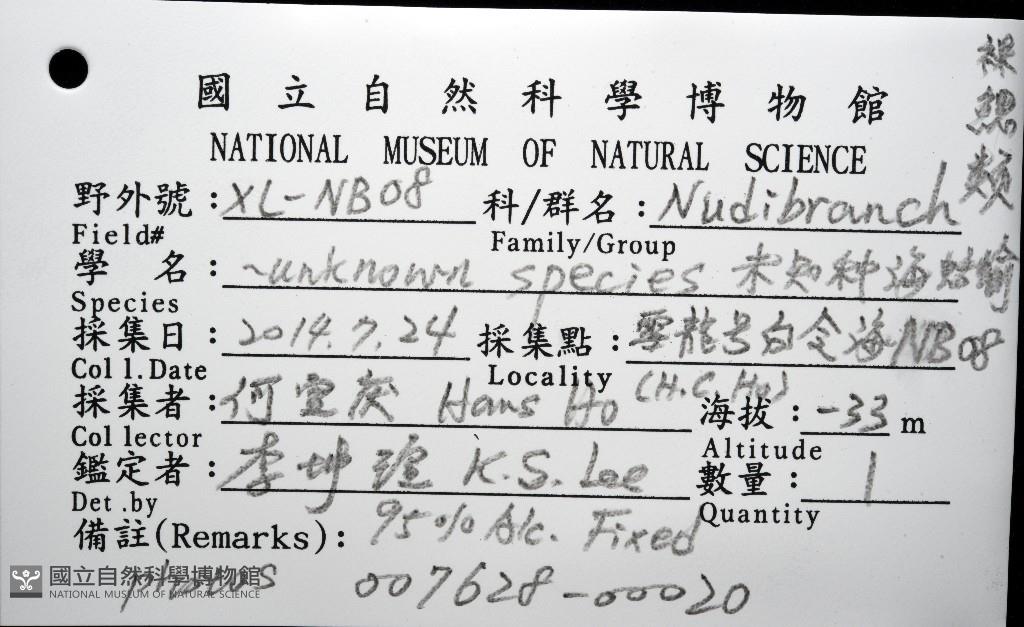 國立自然科學博物館
NATIONAL MUSEUM OF NATURAL SCIENCE
裸鰓類
野外號:XL-NB08 科/群名:Nudibranch
Field# Family/Group
學 名:~unknown species 未知種海蛞蝓
Species
採集日:2014.7.24 採集點:雪龍号白令海NB08
Coll.Date Locality
採集者:何宣庆 Hans Ho (H.C.Ho) 海拔:-33 m
Collector Altitude
鑑定者:李坤瑄 K.S.Lee 數量:1
Det.by Quantity
備註(Remarks): 95% Alc. Fixed
photos 007628-00020
國立自然科學博物館
NATIONAL MUSEUM OF NATURAL SCIENCE